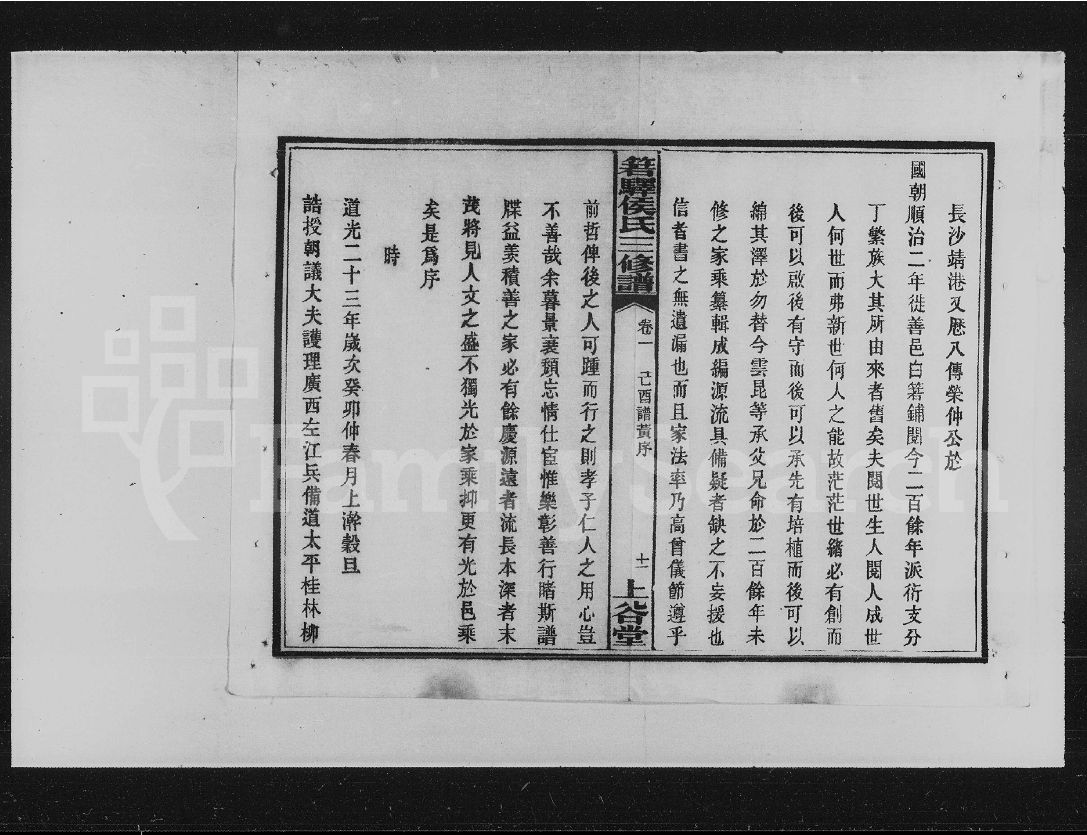 長沙靖港又歷八傳榮仲公於
國朝順治二年徙善邑白箬鋪閱今二百餘年派衍支分
丁繁族大其所由來者舊矣夫閱世生人閱人成世
人何世而弗新世何人之能故茫茫世緒必有創而
後可以啟後有守而後可以承先有培植而後可以
綿其澤於勿替今雲昆等承父兄命於二百餘年未
修之家乘纂輯成編源流具備疑者缺之不妄援也
信者書之無遺漏也而且家法率乃高曾儀節遵乎
箬驛侯氏三修譜 卷一 己酉譜黃序 十一 上谷堂
前哲俾後之人可踵而行之則孝子仁人之用心豈
不善哉余暮景衰頹忘情仕宦惟樂彰善行睹斯譜
牒益羨積善之家必有餘慶源遠者流長本深者末
茂將見人文之盛不獨光於家乘抑更有光於邑乘
矣是為序
時
道光二十三年歲次癸卯仲春月上澣穀旦
誥授朝議大夫護理廣西左江兵備道太平桂林柳
FamilySearch